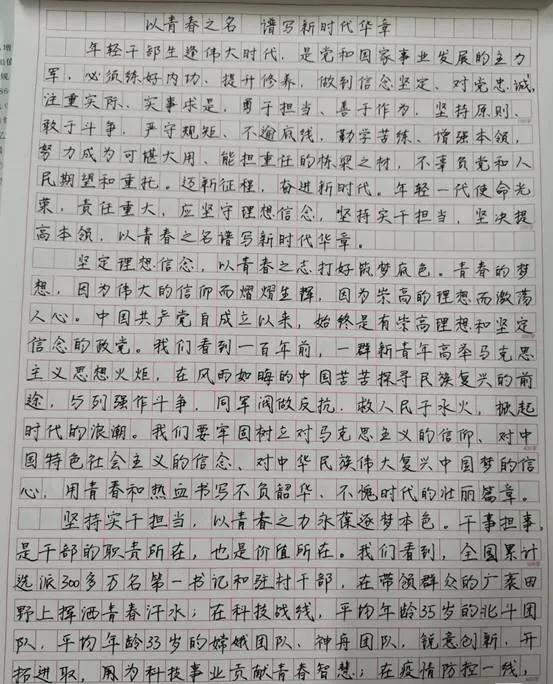 以青春之名 谱写新时代华章
年轻干部生逢伟大时代，是党和国家事业发展的主力
军，必须练好内功、提升修养，做到信念坚定、对党忠诚，
注重实际、实事求是，勇于担当、善于作为，坚持原则、
敢于斗争，严守规矩、不逾底线，勤学苦练、增强本领，
努力成为可堪大用、能担重任的栋梁之材，不辜负党和人
民期望和重托。迈新征程，奋进新时代。年轻一代使命光
荣，责任重大，应坚守理想信念，坚持实干担当，坚决提
高本领，以青春之名谱写新时代华章。
坚定理想信念，以青春之志打好筑梦底色。青春的梦
想，因为伟大的信仰而熠熠生辉，因为崇高的理想而激荡
人心。中国共产党自成立以来，始终是有崇高理想和坚定
信念的政党。我们看到一百年前，一群新青年高举马克思
主义思想火炬，在风雨如晦的中国苦苦探寻民族复兴的前
途，与列强作斗争，同军阀做反抗，救人民于水火，掀起
时代的浪潮。我们要牢固树立对马克思主义的信仰、对中
国特色社会主义的信念、对中华民族伟大复兴中国梦的信
心，用青春和热血书写不负韶华、不愧时代的壮丽篇章。
坚持实干担当，以青春之力永葆逐梦本色。干事担事，
是干部的职责所在，也是价值所在。我们看到，全国累计
选派300多万名第一书记和驻村干部，在带领群众的广袤田
野上挥洒青春汗水；在科技战线，平均年龄35岁的北斗团
队，平均年龄33岁的嫦娥团队、神舟团队，锐意创新、开
拓进取，用为科技事业贡献青春智慧；在疫情防控一线，